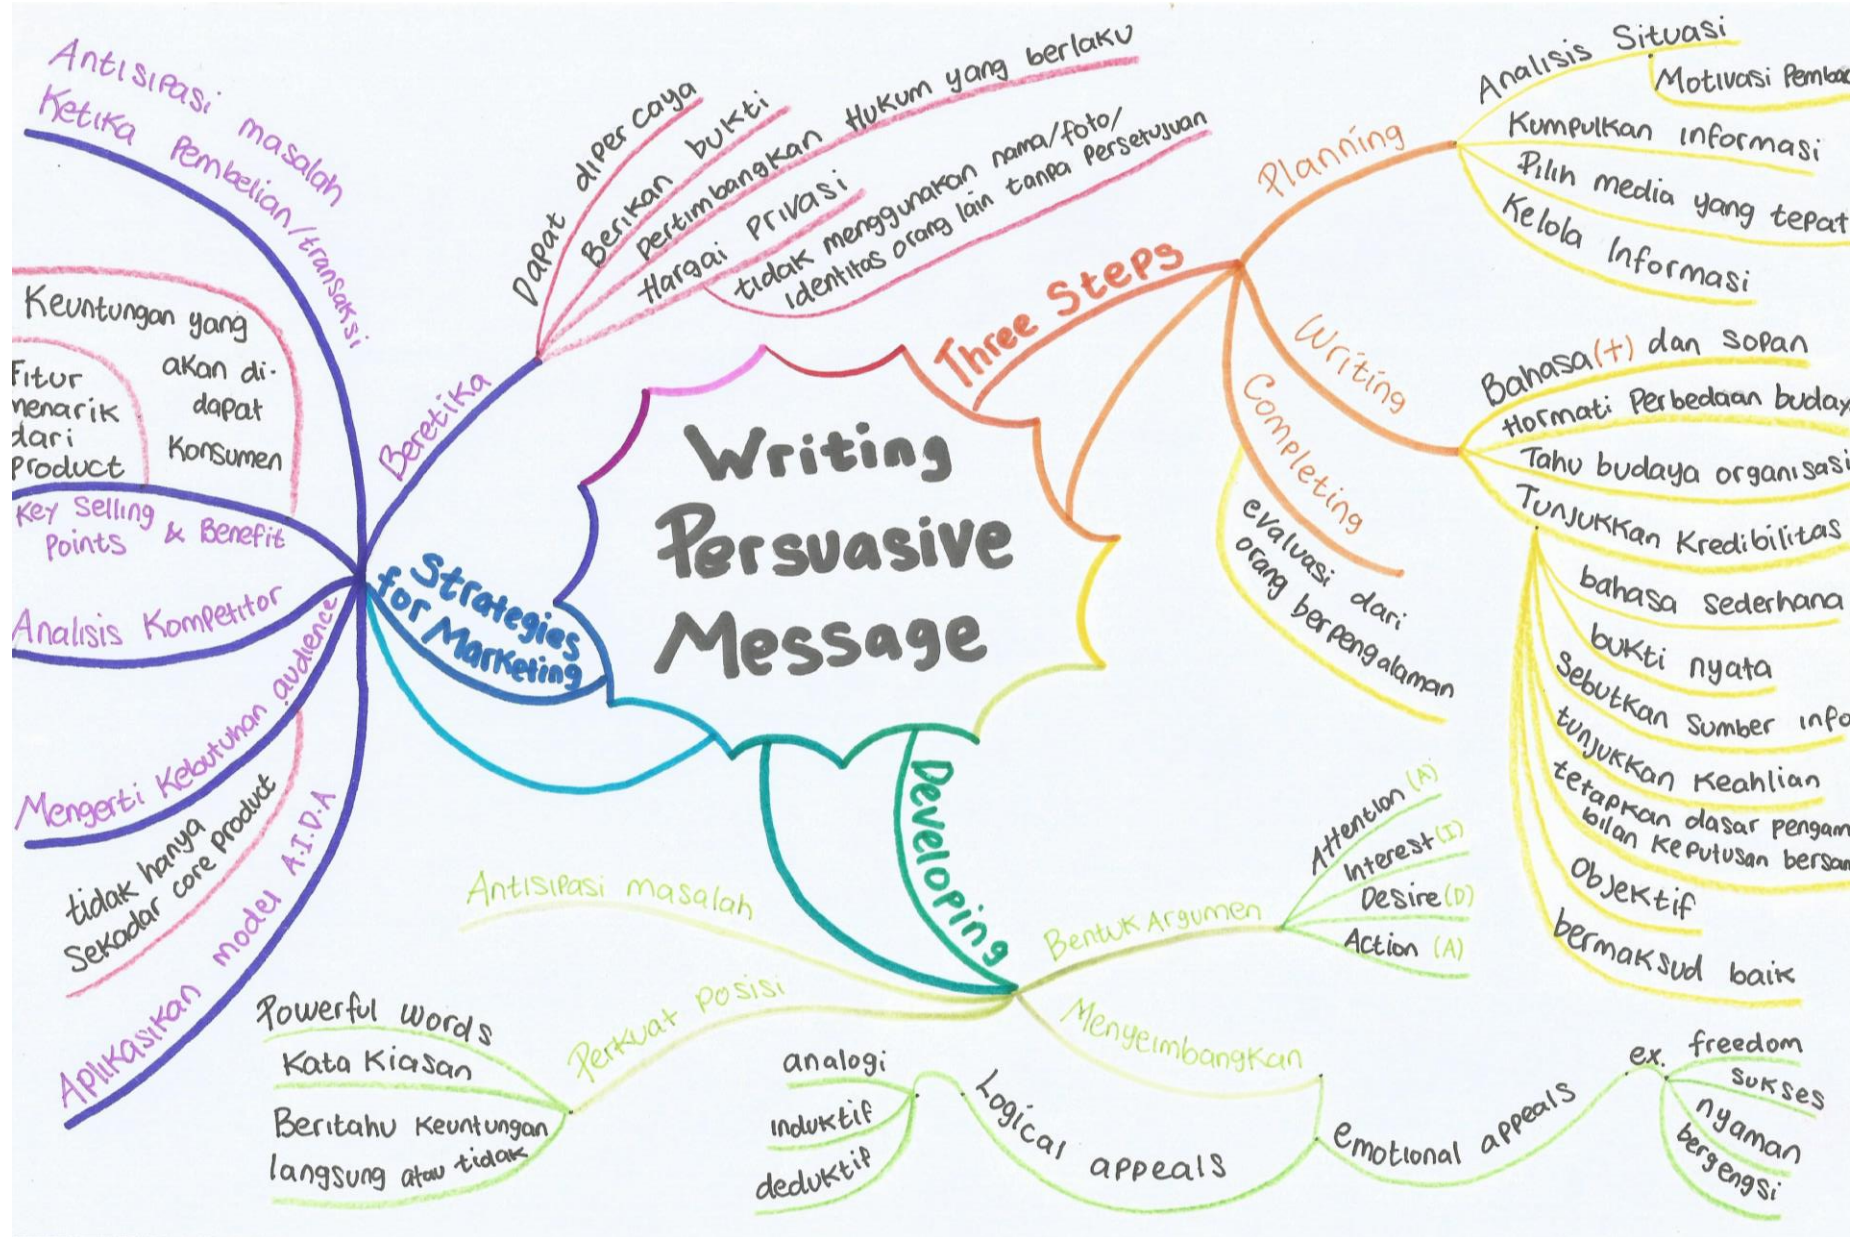 Writing
Persuasive
Message
Three Steps
Planning
Analisis Situasi
Motivasi
Kumpulkan informasi
Pilih media yang tepat
Kelola Informasi
Writing
Bahasa (+) dan sopan
Hormati Perbedaan
Tahu budaya organisasi
Tunjukkan Kredibilitas
bahasa sederhana
bukti nyata
Sebutkan sumber info
tunjukkan keahlian
tetapkan dasar pengam
bilan keputusan
Objektif
bermaksud baik
Completing
evaluasi dari
orang berpengalaman
Developing
Bentuk Argumen
Attention (A)
Interest (I)
Desire (D)
Action (A)
Menyeimbangkan
Logical appeals
analogi
induktif
deduktif
emotional appeals
ex.
freedom
sukses
nyaman
bergengsi
Perkuat posisi
Powerful words
Kata Kiasan
Beritahu keuntungan
langsung atau tidak
Antisipasi masalah
Strategies
for Marketing
Beretika
Dapat dipercaya
Berikan bukti
pertimbangkan Hukum yang berlaku
Hargai Privasi
tidak menggunakan nama/foto/
identitas orang lain tanpa persetujuan
Antisipasi masalah
Ketika Pembelian/transaksi
Key Selling
Points & Benefit
Keuntungan yang
akan di-
dapat
konsumen
Fitur
menarik
dari
product
Analisis Kompetitor
Mengerti Kebutuhan audience
tidak hanya
Sekadar core product
Aplikasikan model A.I.D.A